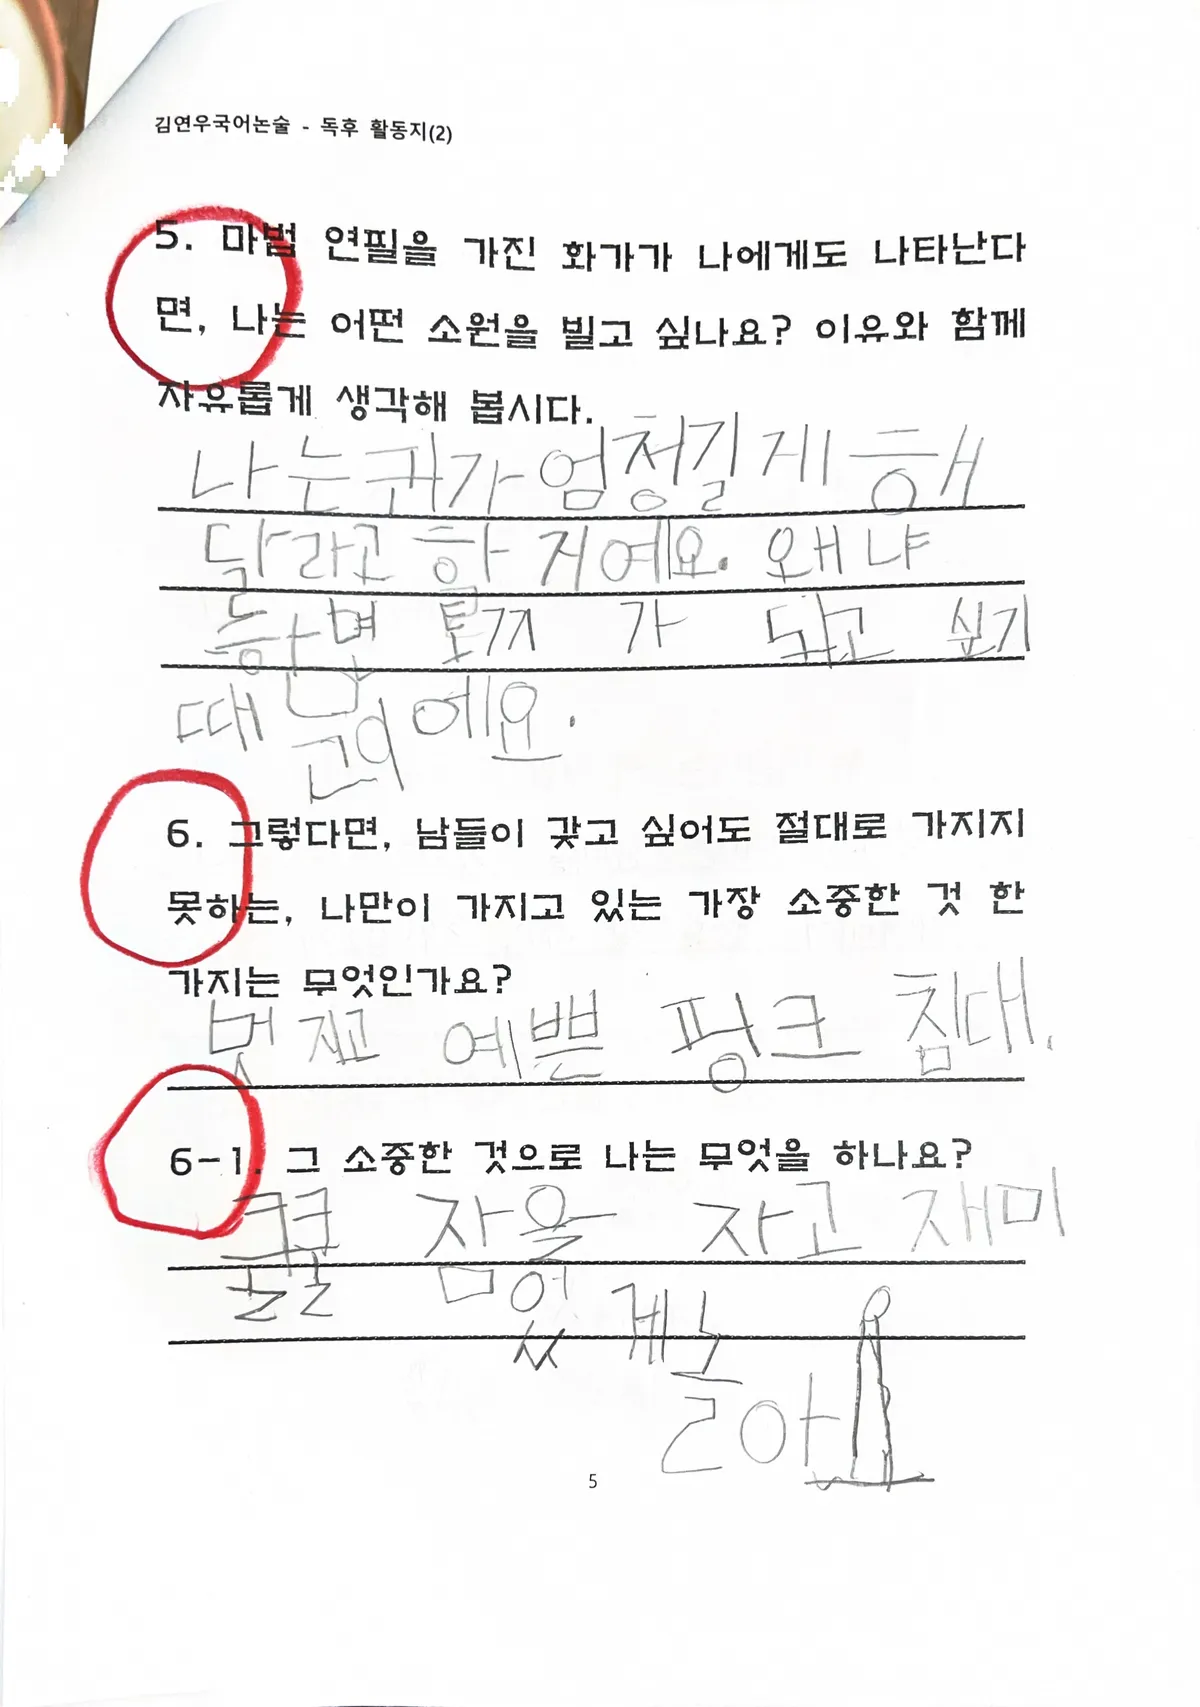 김연우국어논술 - 독후 활동지(2)
5. 마법 연필을 가진 화가가 나에게도 나타난다
면, 나는 어떤 소원을 빌고 싶나요? 이유와 함께
자유롭게 생각해 봅시다.
나는 귀가 엄청길게 해
달라고 할 거예요. 왜냐
하면 토끼가 되고 싶기
때문이에요.
6. 그렇다면, 남들이 갖고 싶어도 절대로 가지지
못하는, 나만이 가지고 있는 가장 소중한 것 한
가지는 무엇인가요?
멋지고 예쁜 핑크 침대.
6-1. 그 소중한 것으로 나는 무엇을 하나요?
쿨쿨 잠을 자고 재미
있게 놀아요
5